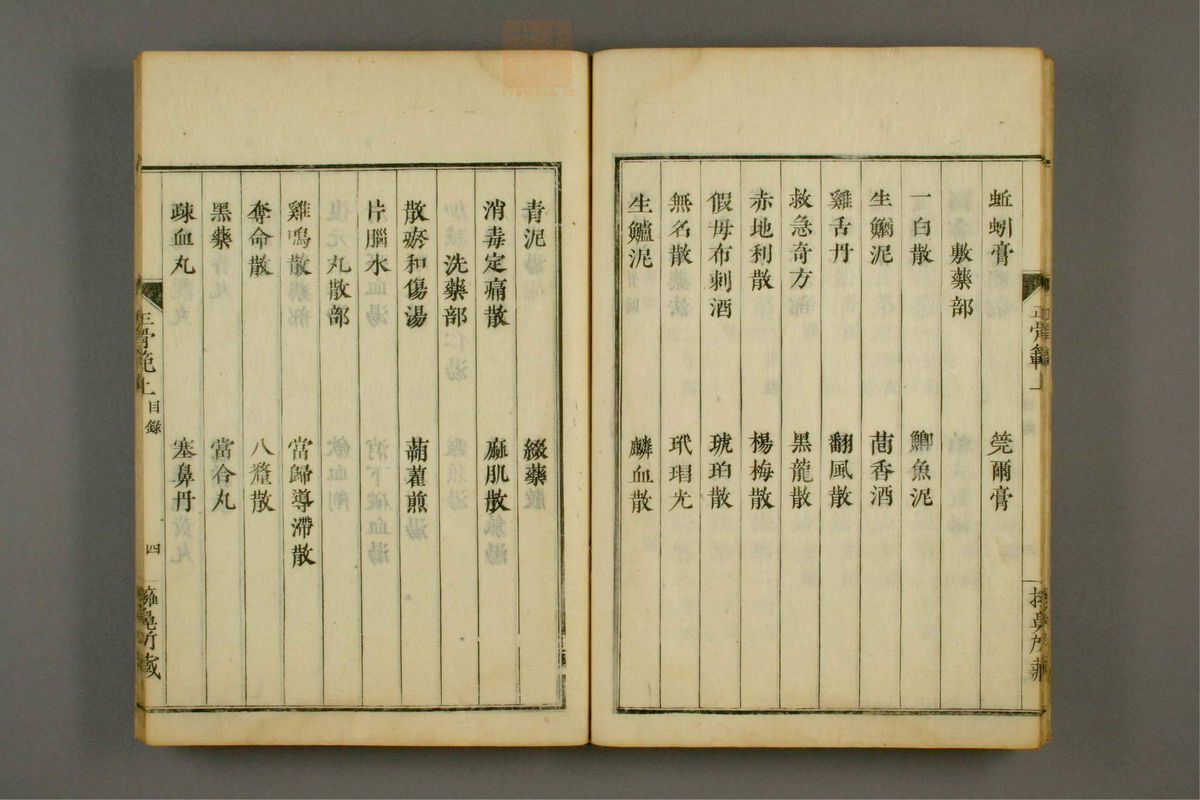 蚯蚓膏 筦爾膏
敷藥部
一白散 鯽魚泥
生鰌泥 茴香酒
雞舌丹 翻風散
救急奇方 黑龍散
赤地利散 楊梅散
假母布刺酒 琥珀散
無名散 玳瑁光
生鱸泥 麟血散
青泥 綴藥
消毒定痛散 麻肌散
洗藥部
散瘀和傷湯 蒴藋煎
片腦水
丸散部
雞鳴散 當歸導滯散
奪命散 八釐散
黑藥 當合丸
疎血丸 塞鼻丹
正骨範上 目錄 四